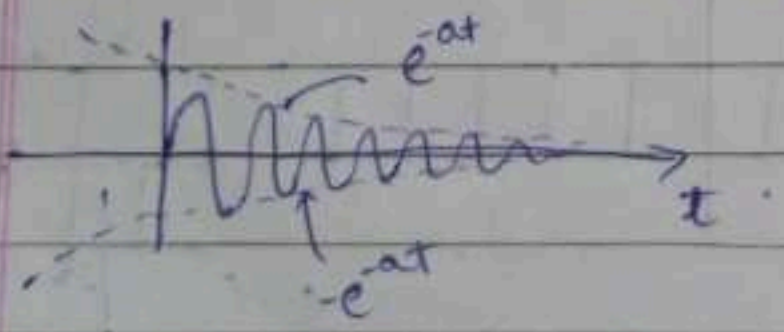 e^{-at}
t
-e^{-at}